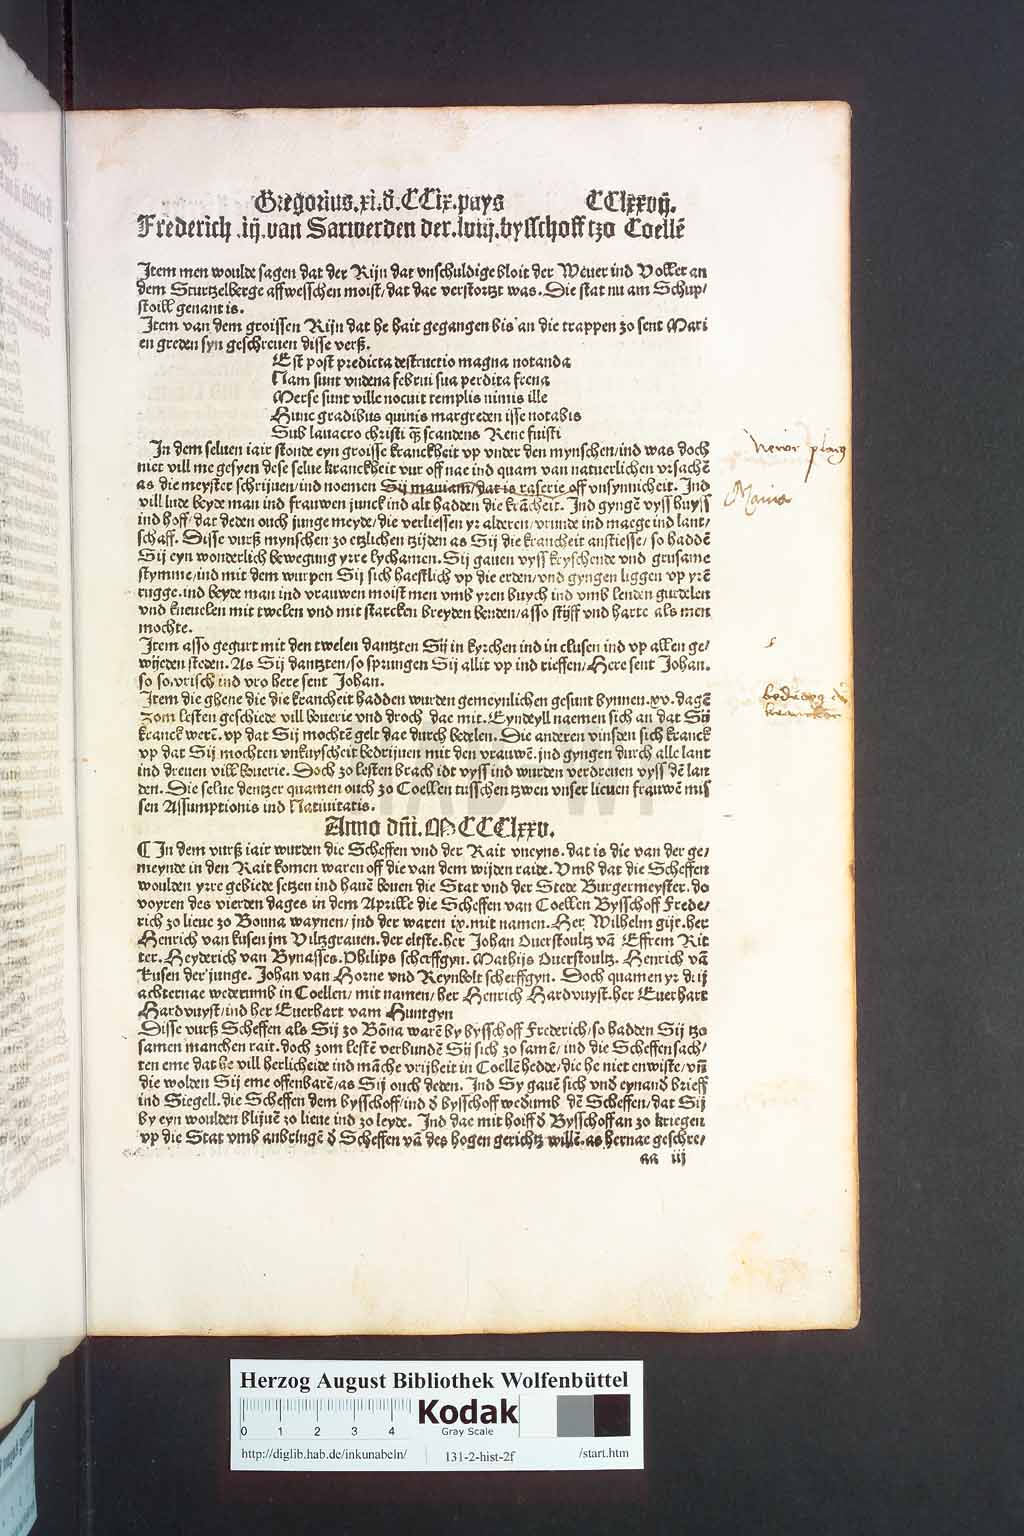 Gregorius.xi.d̄.CCix.pays CClxxvij.
Frederich .iij.van Sarwerden der.lviij.bysschoff tzo Coellē
Jtem men woulde sagen dat der Rijn dat vnschuldige bloit der Weuer ind Voller an
dem Sturtzelberge affwesschen moist/dat dae verstortzt was. Die stat nu am Schup/
stoill genant is.
Jtem van dem groissen Rijn dat he hait gegangen bis an die trappen zo sent Mari
en greden syn geschreuen disse verß.
Est post predicta destructio magna notanda
Nam sunt vndena februi sua perdita frena
Merse sunt ville nocuit templis nimis ille
Hunc gradibus quinis margreden isse notabis
Sub lauacro christi qz scandens Rene fuisti
In dem seluen iair stonde eyn groisse kranckheit vp vnder den mynschen/ind was doch
niet vill me gesyen dese selue kranckheit vur off nae ind quam van natuerlichen vrsachē
as die meyster schrijuen/ind noemen Sij maniam/dat is raserie off vnsynnicheit. Ind
vill lude beyde man ind frauwen junck ind alt hadden die krācheit. Ind gyngē vyss huyss
ind hoff/dat deden ouch junge meyde/die verliessen yr alderen/vrunde ind maege ind lant/
schaff. Disse vurß mynschen zo etzlichen tzijden as Sij die kranckeit anstiesse/so haddē
Sij eyn wonderlich bewegung yrre lychamen. Sij gauen vyss kryschende vnd grusame
stymme/ind mit dem wurpen Sij sich haestlich vp die erden/vnd gyngen liggen vp yrē
rugge.ind beyde man ind vrauwen moist men vmb yren buych ind vmb lenden gurdelen
vnd kneuelen mit twelen vnd mit starcken breyden benden/asso stijff vnd harte als men
mochte.
Jtem asso gegurt mit den twelen dantzten Sij in kyrchen ind in clusen ind vp allen ge/
wijeden steden. As Sij dantzten/so sprungen Sij allit vp ind rieffen/Here sent Johan.
so so.vrisch ind vro here sent Johan.
Jtem die ghene die die krancheit hadden wurden gemeynlichen gesunt bynnen.xv.dagē
zom lesten geschiede vill bouerie vnd droch dae mit. Eyndeyll naemen sich an dat Sij
kranck werē.vp dat Sij mochtē gelt dae durch bedelen. Die anderen vinsden sich kranck
vp dat Sij mochten vnkuyscheit bedrijuen mit den vrauwē.jnd gyngen durch alle lant
ind dreuen vill bouerie. Doch zo lesten brach idt vyss ind wurden verdreuen vyss dē lan
den. Die selue dentzer quamen ouch zo Coellen tusschen tzwen vnser lieuen frauwē mis
sen Assumptionis ind Natiuitatis.
Anno dn̄i.MCCClxxv.
¶ In dem vurß iair wurden die Scheffen vnd der Rait vneyns.dat is die van der ge/
meynde in den Rait komen waren off die van dem wijden raide. Vmb dat die Scheffen
woulden yrre gebiede setzen ind hauē bouen die Stat vnd der Stede Burgermeyster.do
voyren des vierden dages in dem Aprille die Scheffen van Coellen Bysschoff Frede/
rich zo lieue zo Bonna waynen/jnd der waren ix.mit namen. Her Wilhelm gijr.her
Henrich van kusen jm Viltzgrauen.der eltste.her Johan Ouerstoultz vā Effrem Rit
ter. Heyderich van Bynasses. Philips scherffgyn. Mathijs Ouerstoultz. Henrich vā
Kusen der junge. Johan van Horne vnd Reynbolt scherffgyn. Doch quamen yr drij
achternae wederumb in Coellen/mit namen/her Henrich Hardvuyst.her Euerhart
Hardvuyst/ind her Euerhart vam Huntgyn
Disse vurß Scheffen als Sij zo Bōna warē by bysschoff Frederich/so hadden Sij tzo
samen manchen rait.doch zom lestē verbundē Sij sich zo samē/ind die Scheffen sach/
ten eme dat he vill herlicheide ind māche vrijheit in Coellē hedde/die he niet enwiste/vn̄
die wolden Sij eme offenbarē/as Sij ouch deden. Ind Sy gauē sich vnd̄ eynand̄ brieff
ind Siegell.die Scheffen dem bysschoff/ind d̄ bysschoff wed̄umb dē Scheffen/dat Sij
by eyn woulden blijuē zo lieue ind zo leyde. Ind dae mit hoiff d̄ Bysschoff an zo kriegen
vp die Stat vmb anbringē d̄ Scheffen vā des hogen gerichtz willē.as hernae geschre/
aa iij
Mania
Herzog August Bibliothek Wolfenbüttel
0 1 2 3 4
Kodak
Gray Scale
http://diglib.hab.de/inkunabeln/ 131-2-hist-2f /start.htm